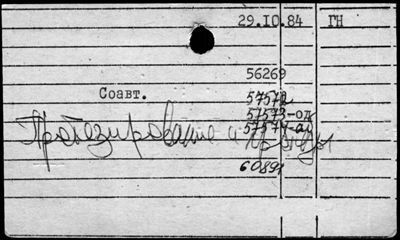 29.10.84 ГН
56269
Соавт.
57572
57573-од
57574-ад
Протезирование и
60891